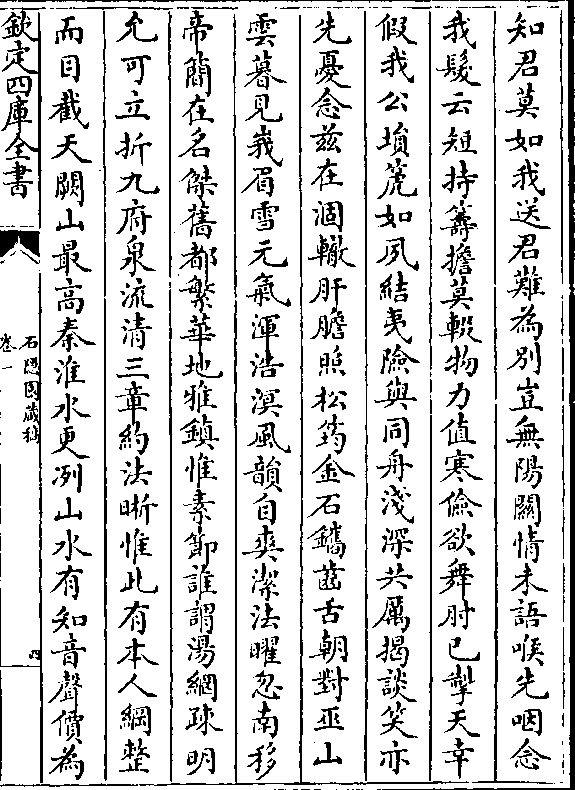 知君莫如我送君難為別豈無陽關情未語喉先咽念
我髮云短持籌擔莫輟物力值寒儉欲舞肘已掣天幸
假我公塤箎如夙結夷險與同舟淺深共厲揭談笑亦
先憂念兹在涸轍肝膽照松筠金石鐫齒舌朝對巫山
雲暮見峩眉雪元氣渾浩溟風韻自爽潔法曜忽南移
帝簡在名傑舊都繁華地雅鎮惟素節誰謂湯網疎明
允可立折九府泉流清三章約法晣惟此有本人綱整
而目截天闕山最高秦淮水更冽山水有知音聲價為
欽定四庫全書
石隱園藏稿
卷一
四